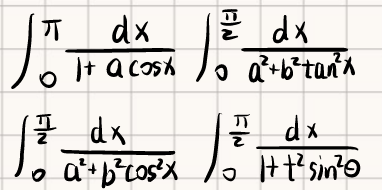 ∫₀^π dx/(1+a cosx)  ∫₀^(π/2) dx/(a²+b²tan²x)
∫₀^(π/2) dx/(a²+b²cos²x)  ∫₀^(π/2) dx/(1+t²sin²θ)